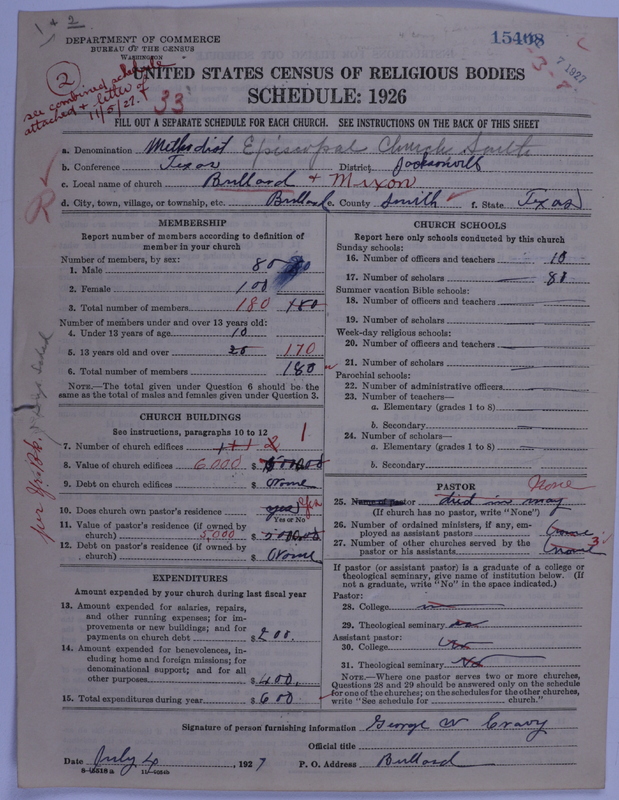 1 & 2
DEPARTMENT OF COMMERCE
BUREAU OF THE CENSUS
WASHINGTON
15408
7 1927
3-8
2
UNITED STATES CENSUS OF RELIGIOUS BODIES
SCHEDULE: 1926
see combined schedule
attached + letter of
11/5/27.
33
FILL OUT A SEPARATE SCHEDULE FOR EACH CHURCH. SEE INSTRUCTIONS ON THE BACK OF THIS SHEET
a. Denomination Methodist Episcopal Church South
b. Conference Texas District Jacksonville
c. Local name of church Bullard + Mixon
d. City, town, village, or township, etc. Bullard e. County Smith f. State Texas
R
MEMBERSHIP
Report number of members according to definition of
member in your church
Number of members, by sex:
1. Male 80 80
2. Female 100
3. Total number of members 180 180
Number of members under and over 13 years old:
4. Under 13 years of age 10
5. 13 years old and over 20 170
6. Total number of members 180
NOTE.—The total given under Question 6 should be the
same as the total of males and females given under Question 3.
CHURCH BUILDINGS
See instructions, paragraphs 10 to 12
7. Number of church edifices 1+1 2 1
8. Value of church edifices 6,000 $
9. Debt on church edifices $ None
10. Does church own pastor's residence yes
Yes or No
11. Value of pastor's residence (if owned by
church) 5,000 $
12. Debt on pastor's residence (if owned by
church) $ None
EXPENDITURES
Amount expended by your church during last fiscal year
13. Amount expended for salaries, repairs,
and other running expenses; for im-
provements or new buildings; and for
payments on church debt $ 200.
14. Amount expended for benevolences, in-
cluding home and foreign missions; for
denominational support; and for all
other purposes $ 400.
15. Total expenditures during year $ 600
CHURCH SCHOOLS
Report here only schools conducted by this church
Sunday schools:
16. Number of officers and teachers 10
17. Number of scholars 80
Summer vacation Bible schools:
18. Number of officers and teachers
19. Number of scholars
Week-day religious schools:
20. Number of officers and teachers
21. Number of scholars
Parochial schools:
22. Number of administrative officers
23. Number of teachers—
a. Elementary (grades 1 to 8)
b. Secondary
24. Number of scholars—
a. Elementary (grades 1 to 8)
b. Secondary
PASTOR
None
25. Name of pastor died in may
(If church has no pastor, write "None")
26. Number of ordained ministers, if any, em-
ployed as assistant pastors None
27. Number of other churches served by the
pastor or his assistants none 3
If pastor (or assistant pastor) is a graduate of a college or
theological seminary, give name of institution below. (If
not a graduate, write "No" in the space indicated.)
Pastor:
28. College
29. Theological seminary
Assistant pastor:
30. College
31. Theological seminary
NOTE.—Where one pastor serves two or more churches,
Questions 28 and 29 should be answered only on the schedule
for one of the churches; on the schedules for the other churches,
write "See schedule for church."
Signature of person furnishing information George W Cravy
Official title
Date July 4, 1927 P. O. Address Bullard